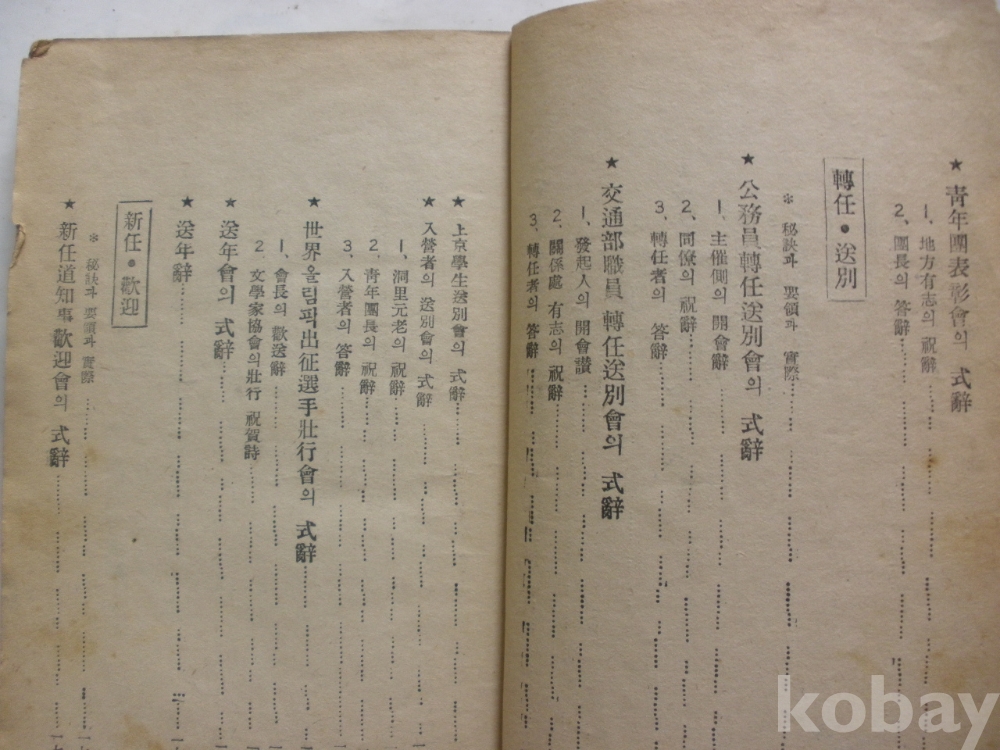 ★ 靑年團表彰會의 式辭
1、地方有志의 祝辭
2、團長의 答辭
轉任・送別
＊ 秘訣과 要領과 實際
★ 公務員轉任送別會의 式辭
1、主催側의 開會辭
2、同僚의 祝辭
3、轉任者의 答辭
★ 交通部職員 轉任送別會의 式辭
1、發起人의 開會讚
2、關係處 有志의 祝辭
3、轉任者의 答辭
★ 上京學生送別會의 式辭
★ 入營者의 送別會의 式辭
1、洞里元老의 祝辭
2、靑年團長의 祝辭
3、入營者의 答辭
★ 世界올림픽出征選手壯行會의 式辭
1、會長의 歡送辭
2、文學家協會의 壯行 祝賀詩
★ 送年會의 式辭
★ 送年辭
新任・歡迎
＊ 秘訣과 要領과 實際
★ 新任道知事 歡迎會의 式辭
kobay